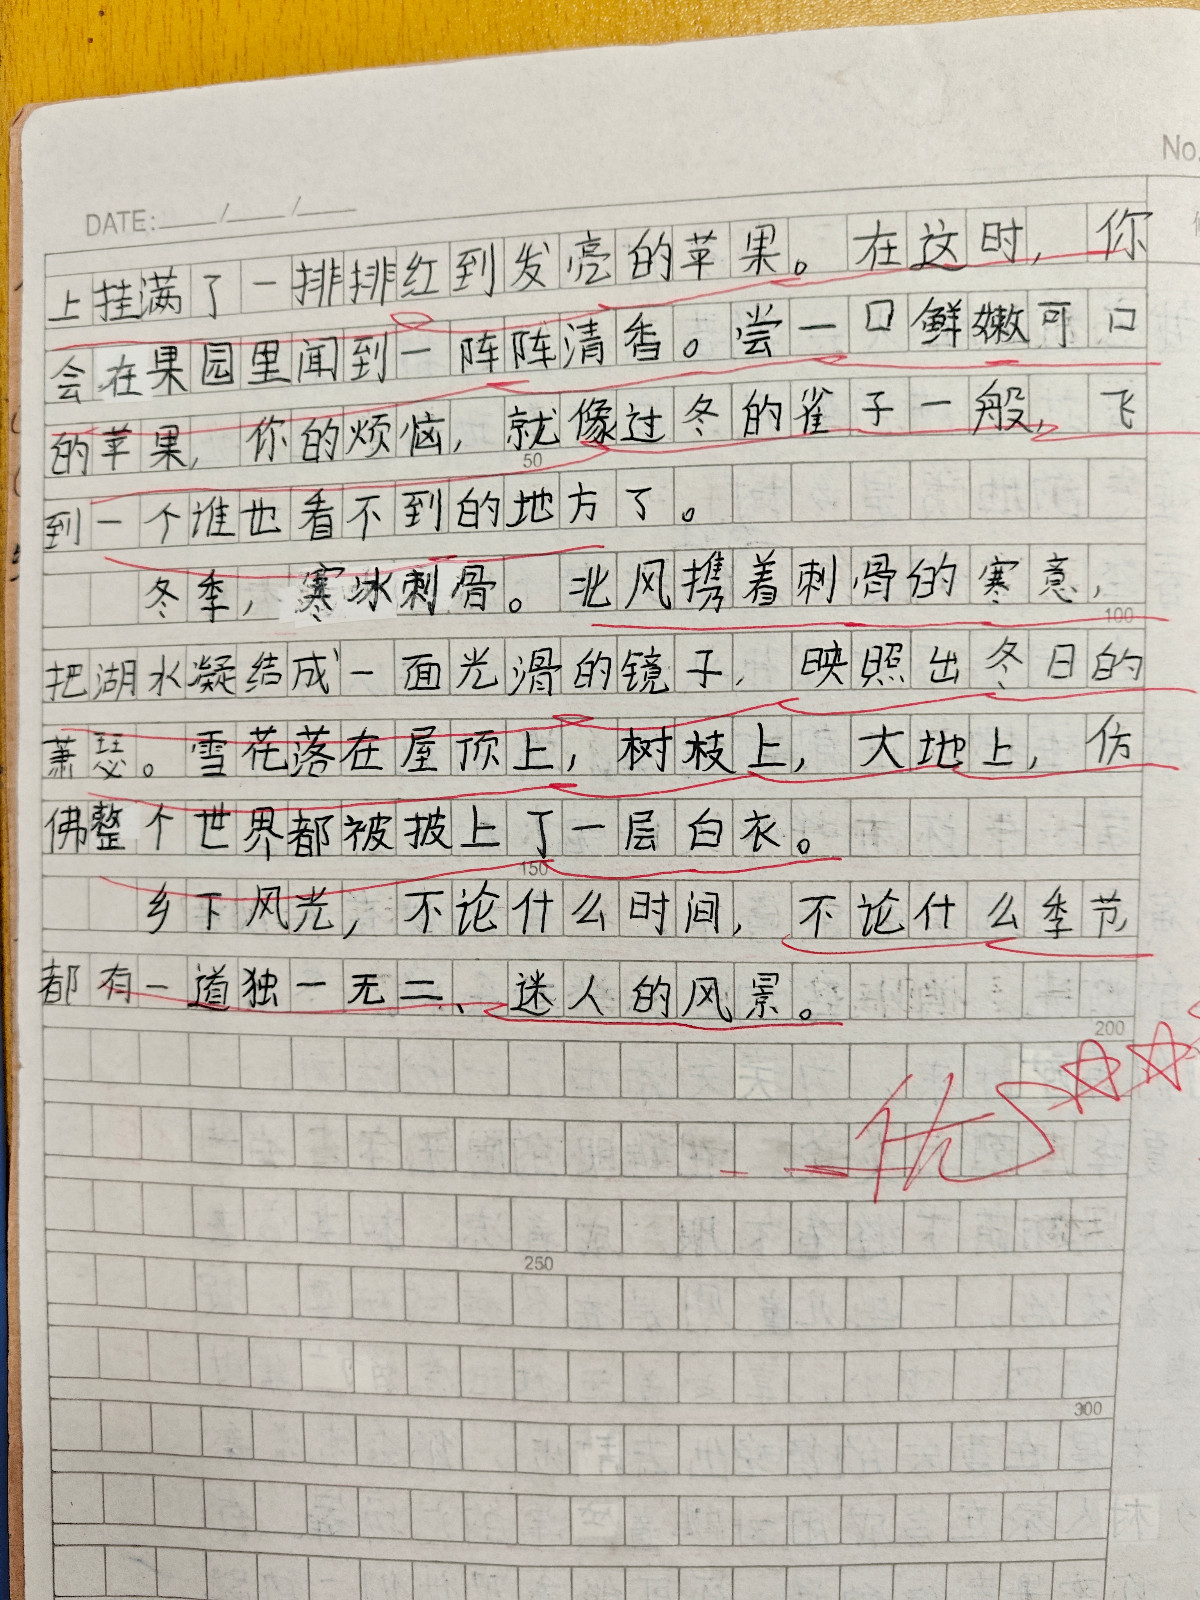 No.
DATE: / /
上挂满了一排排红到发亮的苹果。在这时，你
会在果园里闻到一阵阵清香。尝一口鲜嫩可口
的苹果，你的烦恼，就像过冬的雀子一般，飞
50
到一个谁也看不到的地方了。
冬季，寒冰刺骨。北风携着刺骨的寒意，
100
把湖水凝结成一面光滑的镜子，映照出冬日的
萧瑟。雪花落在屋顶上，树枝上，大地上，仿
佛整个世界都被披上了一层白衣。
150
乡下风光，不论什么时间，不论什么季节
都有一道独一无二、迷人的风景。
200
优
250
300